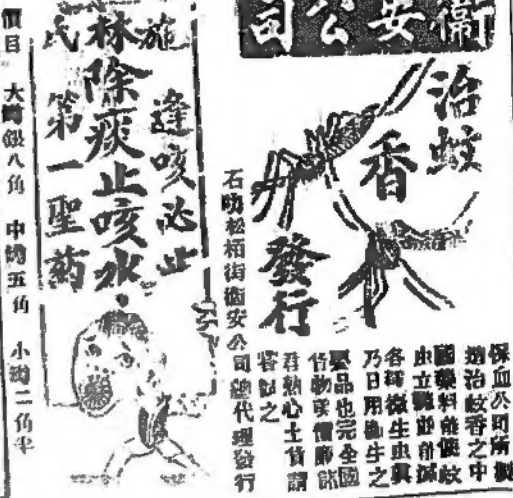 衛安公司
治蚊
香
發行
保血公司所
治蚊香之中
國藥料能使蚊
立並能
各種微生虫真
乃日用衛生之
要品也完全國
貨物美價廉諸
君熱心土貨請
嘗試之
石叻松柏街衛安公司總代理發行
施林氏
逢咳必止
除痰止咳水
第一聖葯
價目 大樽銀八角 中樽五角 小樽二角半